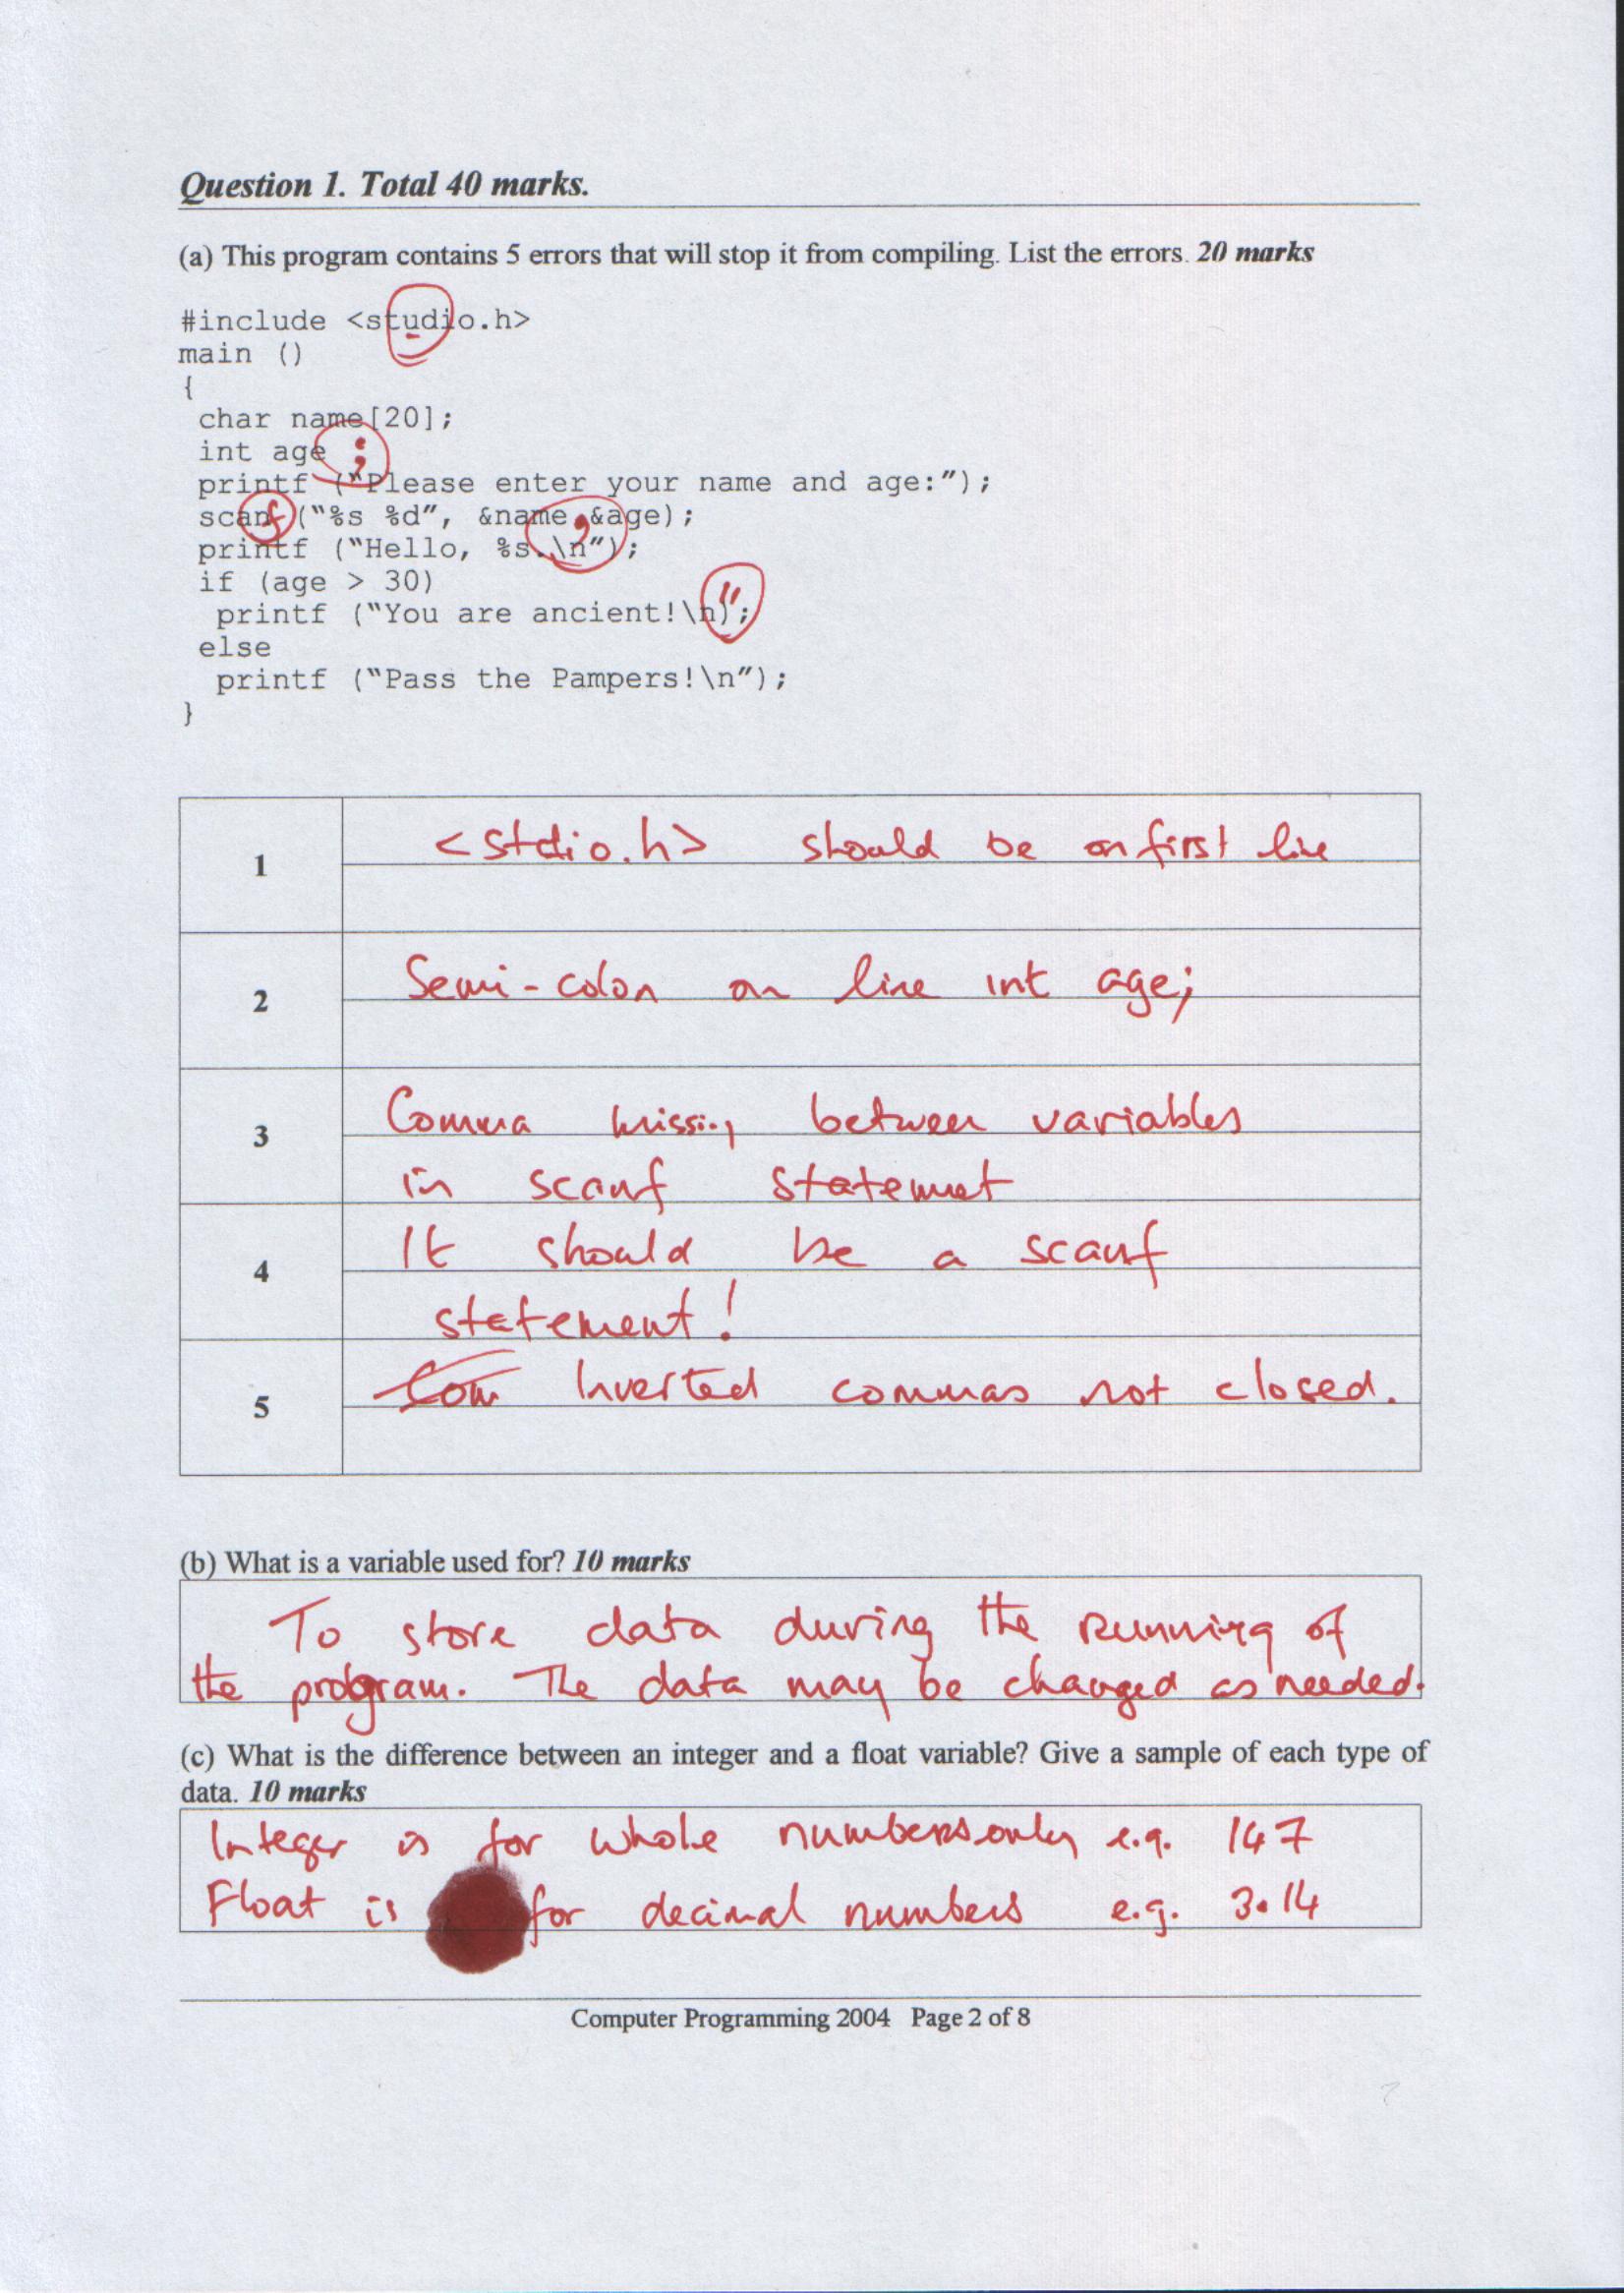 Question 1. Total 40 marks.
(a) This program contains 5 errors that will stop it from compiling. List the errors. 20 marks
#include <studio.h>
main ()
{
char name[20];
int age ;
printf ("Please enter your name and age:");
scanf ("%s %d", &name , &age);
printf ("Hello, %s.\n");
if (age > 30)
printf ("You are ancient!\n)";
else
printf ("Pass the Pampers!\n");
}
1 <stdio.h> should be on first line
2 Semi-colon on line int age;
3 Comma missing between variables
in scanf statement
4 It should be a scanf
statement!
5 Com Inverted commas not closed.
(b) What is a variable used for? 10 marks
To store data during the running of
the program. The data may be changed as needed.
(c) What is the difference between an integer and a float variable? Give a sample of each type of
data. 10 marks
Integer is for whole numbers only e.g. 147
Float is for decimal numbers e.g. 3.14
Computer Programming 2004 Page 2 of 8